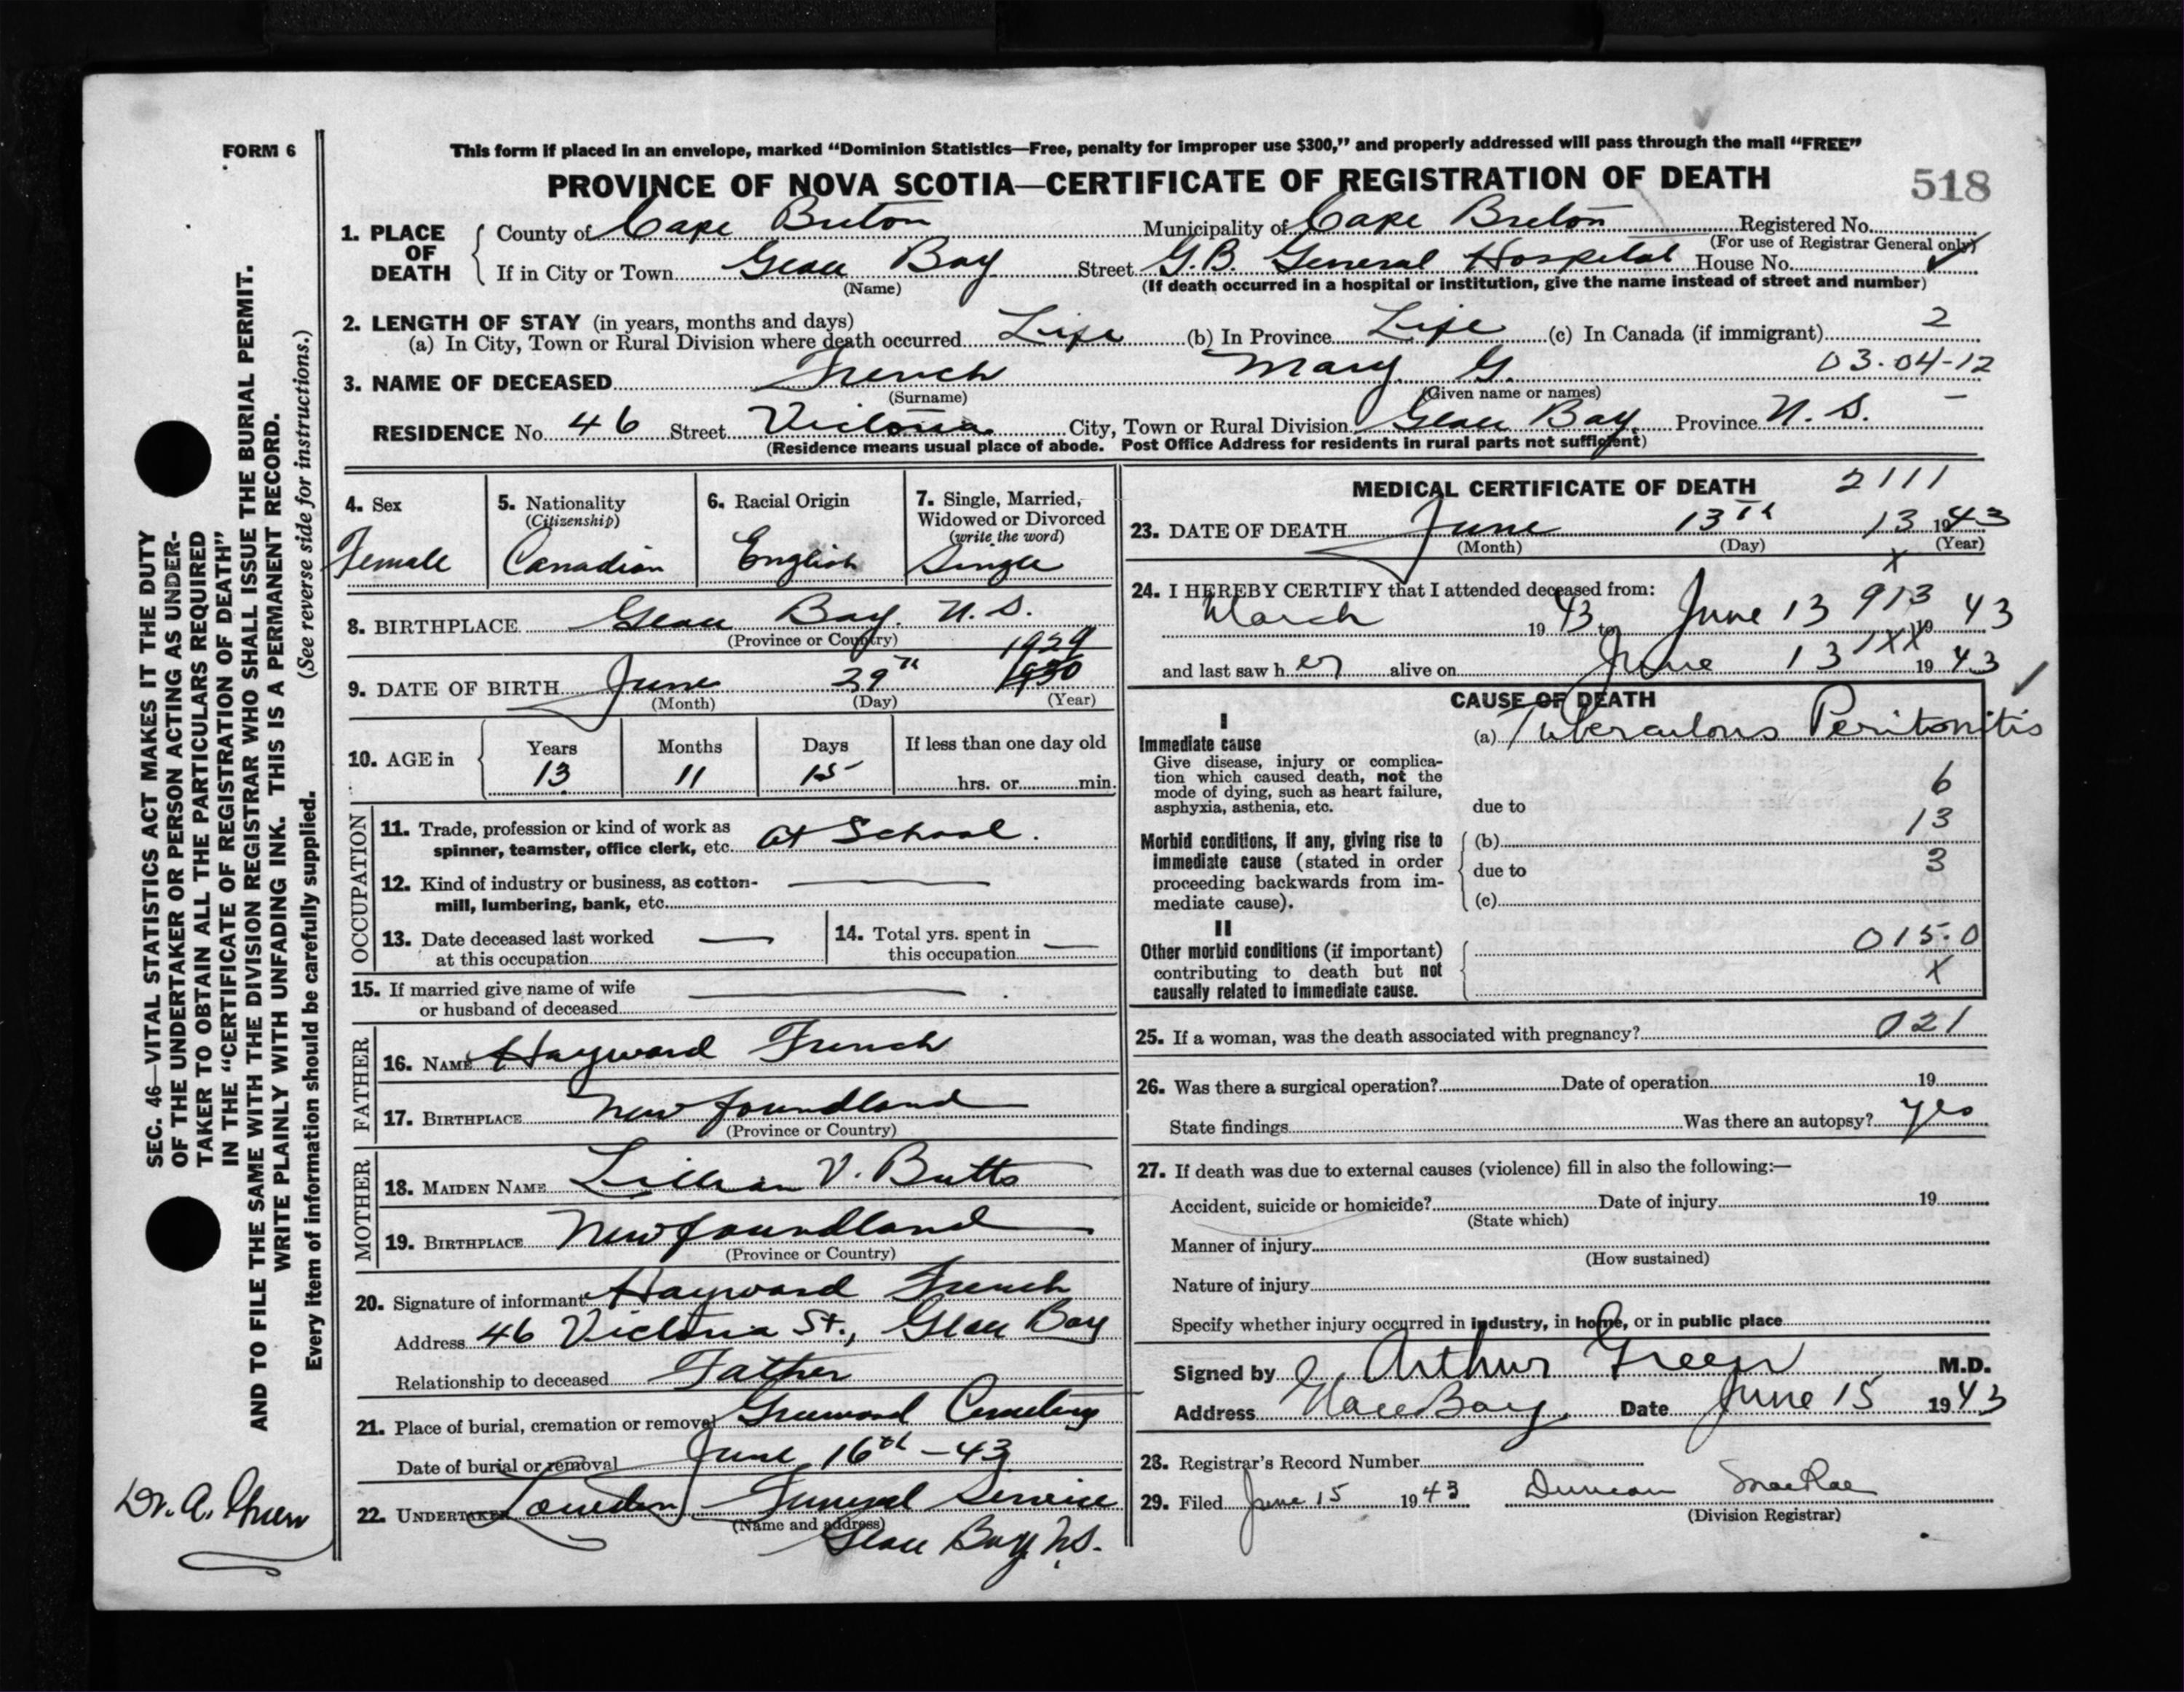 FORM 6
This form if placed in an envelope, marked “Dominion Statistics—Free, penalty for improper use $300,” and properly addressed will pass through the mail “FREE”
PROVINCE OF NOVA SCOTIA—CERTIFICATE OF REGISTRATION OF DEATH
518
1. PLACE OF DEATH County of Cape Breton Municipality of Cape Breton Registered No.
(For use of Registrar General only)
If in City or Town Glace Bay Street G.B. General Hospital House No.
(Name) (If death occurred in a hospital or institution, give the name instead of street and number)
2. LENGTH OF STAY (in years, months and days)
(a) In City, Town or Rural Division where death occurred Life (b) In Province Life (c) In Canada (if immigrant) 2
3. NAME OF DECEASED French Mary G. 03-04-12
(Surname) (Given name or names)
RESIDENCE No. 46 Street Victoria City, Town or Rural Division Glace Bay. Province N. S.
(Residence means usual place of abode. Post Office Address for residents in rural parts not sufficient)
4. Sex
Female
5. Nationality
(Citizenship)
Canadian
6. Racial Origin
English
7. Single, Married, Widowed or Divorced
(write the word)
Single
8. BIRTHPLACE Glace Bay. N. S.
(Province or Country)
1929
9. DATE OF BIRTH June 29th 1930
(Month) (Day) (Year)
10. AGE in Years Months Days If less than one day old
13 11 15 hrs. or min.
OCCUPATION
11. Trade, profession or kind of work as
spinner, teamster, office clerk, etc. At School.
12. Kind of industry or business, as cotton-
mill, lumbering, bank, etc.
13. Date deceased last worked
at this occupation
14. Total yrs. spent in
this occupation
15. If married give name of wife
or husband of deceased
FATHER
16. NAME Hayward French
17. BIRTHPLACE Newfoundland
(Province or Country)
MOTHER
18. MAIDEN NAME Lillian V. Butts
19. BIRTHPLACE Newfoundland
(Province or Country)
20. Signature of informant Hayward French
Address 46 Victoria St., Glace Bay
Relationship to deceased Father
21. Place of burial, cremation or removal Greenwood Cemetery
Date of burial or removal June 16th - 43
22. UNDERTAKER Funeral Service
(Name and address)
Glace Bay N.S.
MEDICAL CERTIFICATE OF DEATH 2111
23. DATE OF DEATH June 13th 13 1943
(Month) (Day) (Year)
x
24. I HEREBY CERTIFY that I attended deceased from:
March 1943 to June 13 913 1943
and last saw her alive on June 13 1xx 1943
CAUSE OF DEATH
I
Immediate cause (a) Tuberculous Peritonitis
Give disease, injury or complica-
tion which caused death, not the
mode of dying, such as heart failure,
asphyxia, asthenia, etc. due to 6
13
Morbid conditions, if any, giving rise to (b)
immediate cause (stated in order due to 3
proceeding backwards from im-
mediate cause). (c)
II
Other morbid conditions (if important) 015.0
contributing to death but not x
causally related to immediate cause.
25. If a woman, was the death associated with pregnancy? 021
26. Was there a surgical operation? Date of operation 19
State findings Was there an autopsy? yes
27. If death was due to external causes (violence) fill in also the following:—
Accident, suicide or homicide? Date of injury 19
(State which)
Manner of injury
(How sustained)
Nature of injury
Specify whether injury occurred in industry, in home, or in public place
Signed by Arthur Green M.D.
Address Glace Bay Date June 15 1943
28. Registrar's Record Number
29. Filed June 15 1943 Duncan MacRae
(Division Registrar)
SEC. 46—VITAL STATISTICS ACT MAKES IT THE DUTY
OF THE UNDERTAKER OR PERSON ACTING AS UNDER-
TAKER TO OBTAIN ALL THE PARTICULARS REQUIRED
IN THE “CERTIFICATE OF REGISTRATION OF DEATH”
AND TO FILE THE SAME WITH THE DIVISION REGISTRAR WHO SHALL ISSUE THE BURIAL PERMIT.
WRITE PLAINLY WITH UNFADING INK. THIS IS A PERMANENT RECORD.
Every item of information should be carefully supplied. (See reverse side for instructions.)
Dr. A. Green